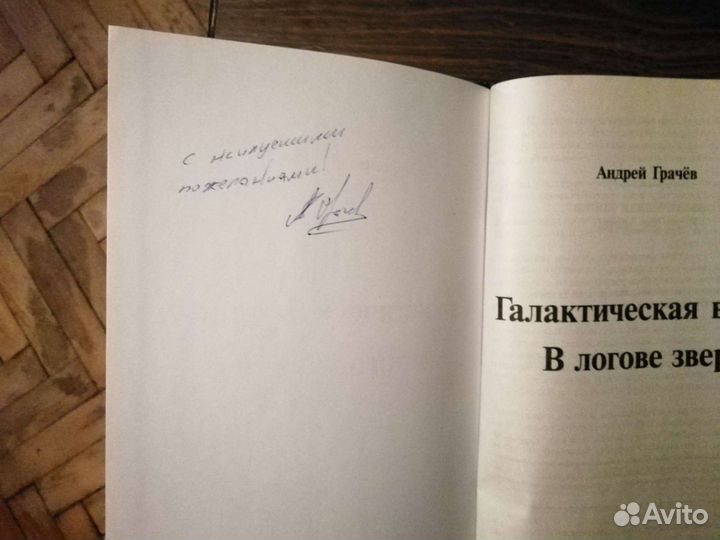 с наилучшими
пожеланиями!
Андрей Грачёв
Галактическая в
В логове звер
Avito